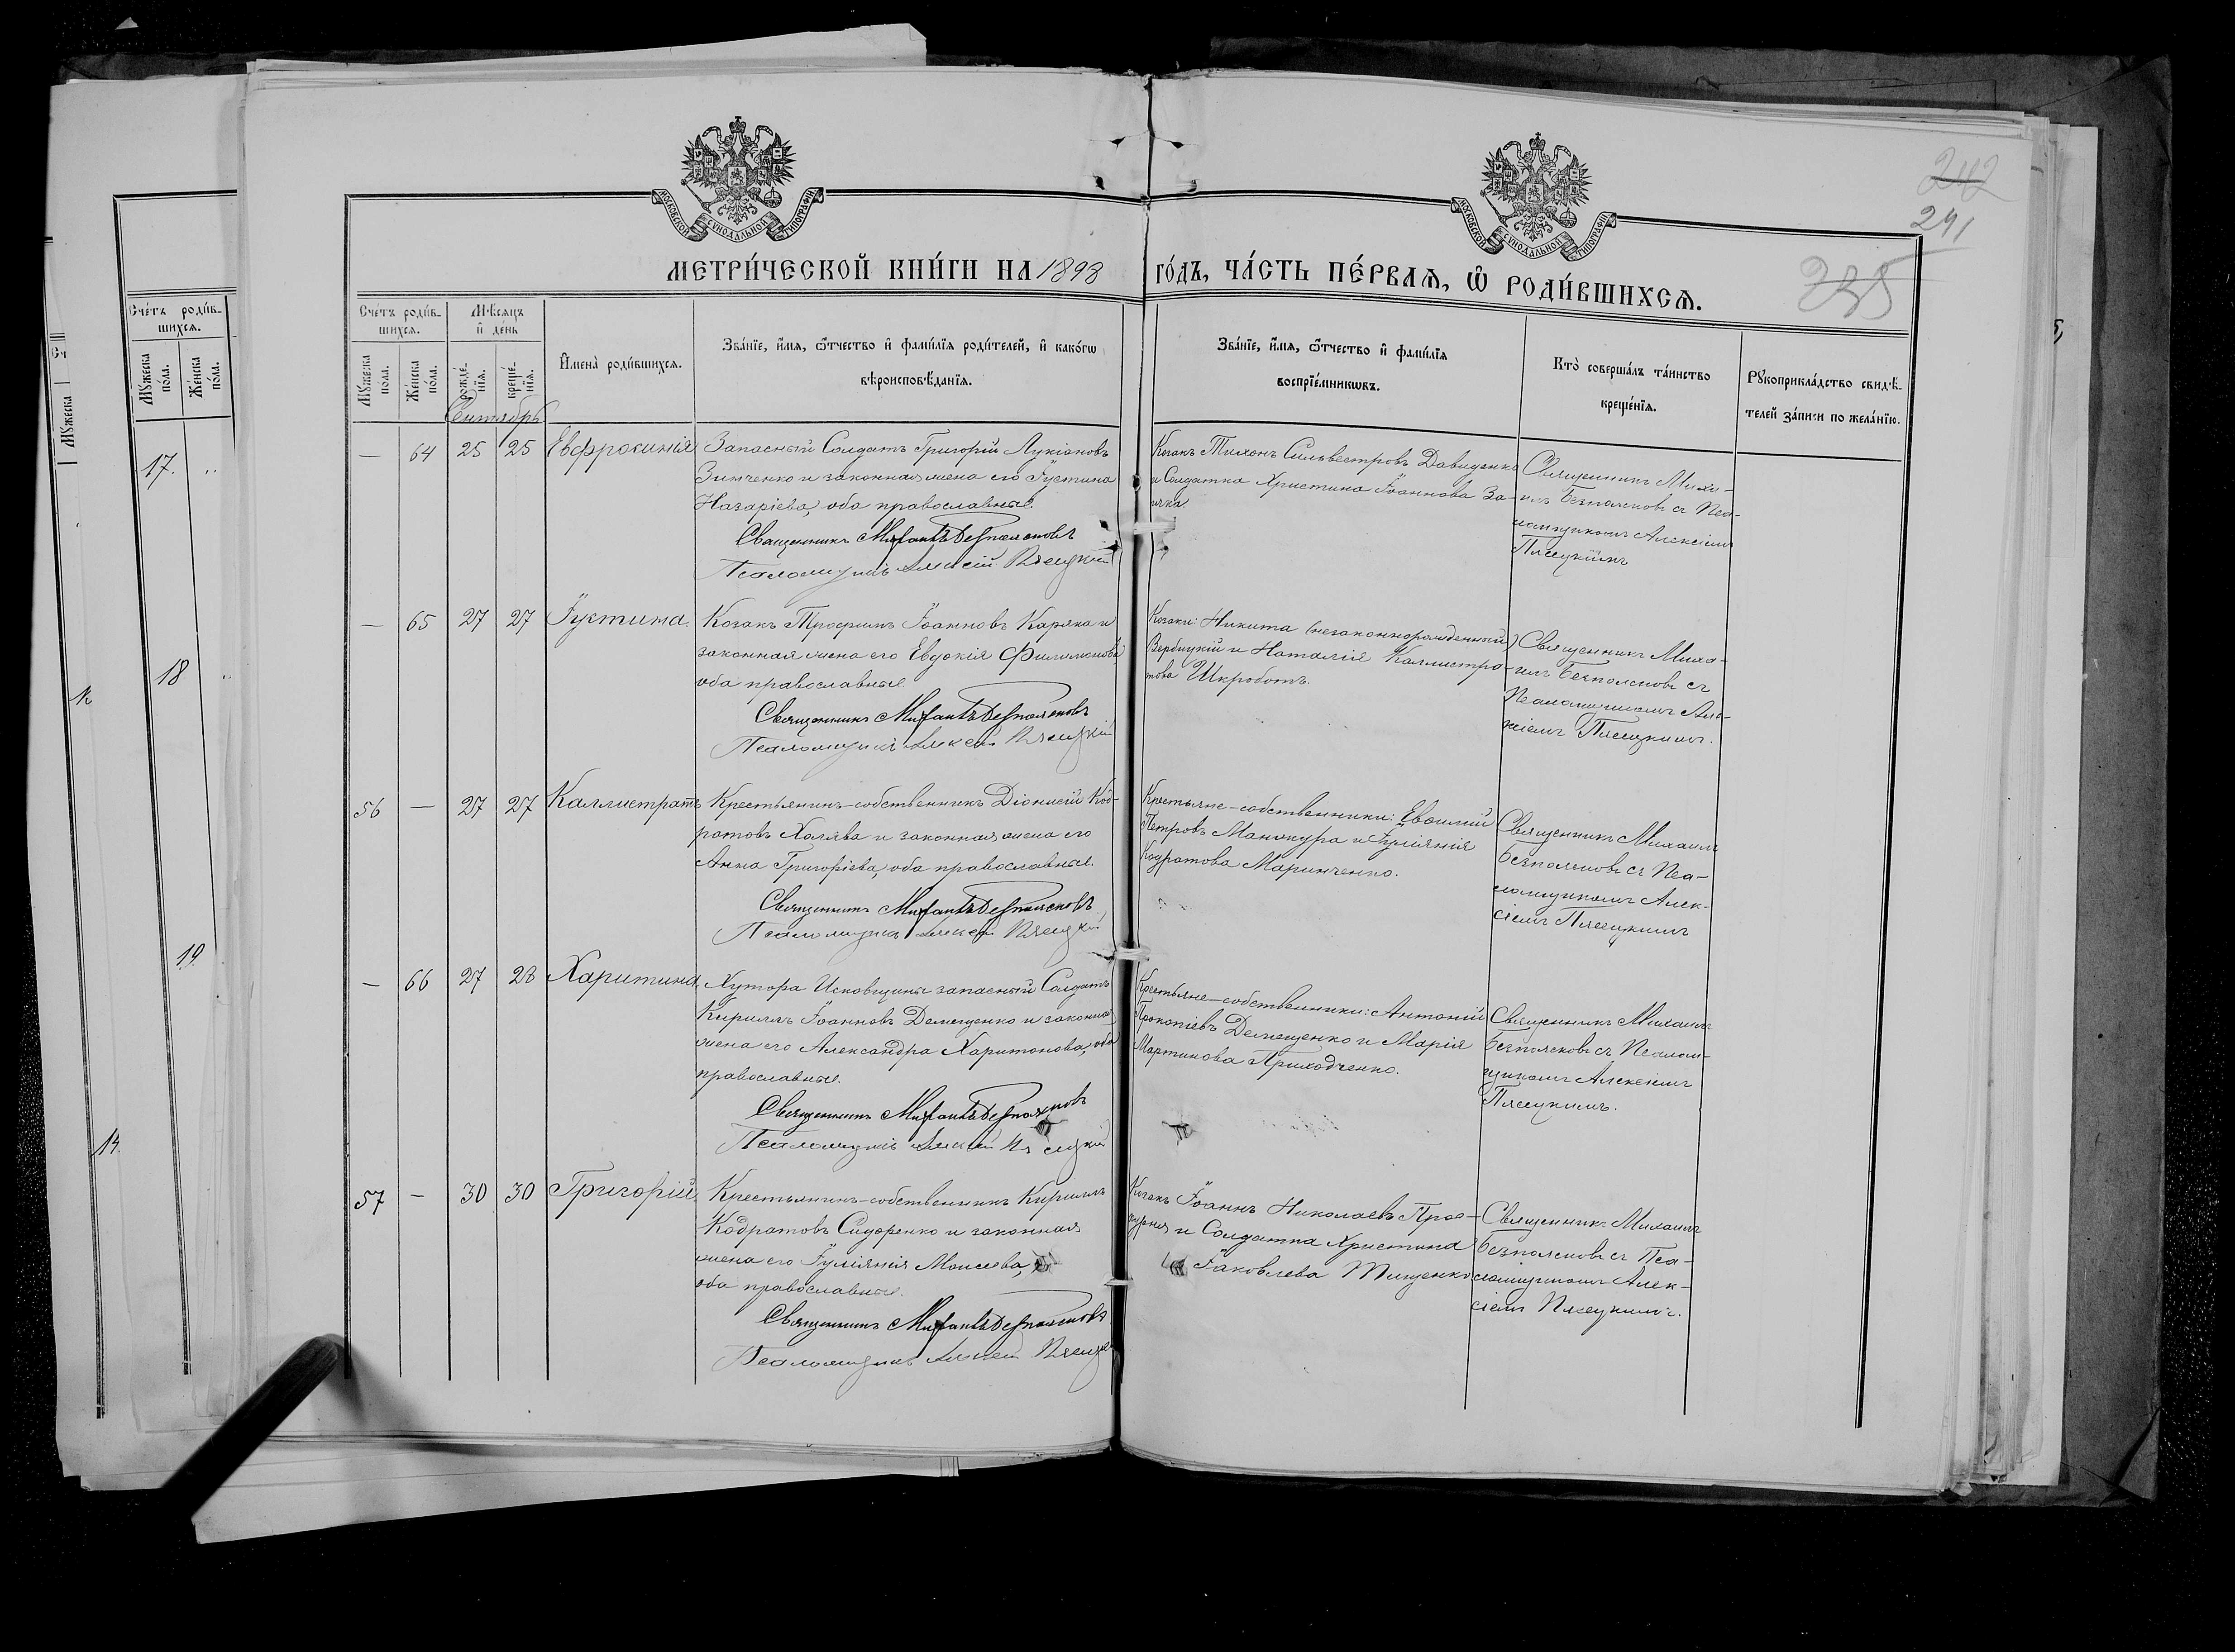 МОСКОВСКОЙ СѴНОДАЛЬНОЙ ТИПОГРАФІИ
МОСКОВСКОЙ СѴНОДАЛЬНОЙ ТИПОГРАФІИ
242
241
235
МЕТРИ́ЧЕСКОЙ КНИ́ГИ НА 1893 ГО́ДЪ, ЧА́СТЬ ПЕ́РВАѦ, Ѡ РОДИ́ВШИХСѦ.
Сче́тъ роди́в-
шихсѧ.
Мꙋжеска
по́ла.
Же́нска
по́ла.
Мѣ́сѧцъ
и҆ де́нь
рожде́-
нїѧ.
креще́-
нїѧ.
И҆мена̀ роди́вшихсѧ.
Зва́нїе, и҆́мѧ, ѻ҆́тчество и҆ фамилїѧ роди́телей, и҆ како́гѡ
вѣроисповѣ́данїѧ.
Зва́нїе, и҆́мѧ, ѻ҆́тчество и҆ фамилїѧ
воспрїе́мникѡвъ.
Кто̀ соверша́лъ та́инство
креще́нїѧ.
Рꙋкоприкла́дство свидѣ́-
телей за́писи по жела́нїю.
Сентябрь
— 64 25 25 Евфросинія
Запасный Солдатъ Григорій Лукіановъ
Зинченко и законная жена его Іустина
Назаріева, оба православные.
Священникъ Михаилъ Безпоясновъ
Псаломщикъ Алексій Пясецкій
Козакъ Тихонъ Сильвестровъ Давиденко
и Солдатка Христина Іоаннова За-
ичка.
Священникъ Миха-
илъ Безпоясновъ съ Пса-
ломщикомъ Алексіемъ
Пясецкимъ
— 65 27 27 Іустина.
Козакъ Трофимъ Іоанновъ Каряка и
законная жена его Евдокія Филимонова
оба православные.
Священникъ Михаилъ Безпоясновъ
Псаломщикъ Алексей Пясецкій
Козаки: Никита (незаконнорожденный)
Вербицкій и Наталія Каллистра-
това Шкроботъ.
Священникъ Миха-
илъ Безпоясновъ съ
Псаломщикомъ Але-
ксіемъ Пясецкимъ.
56 — 27 27 Каллистратъ
Крестьянинъ-собственникъ Діонисій Код-
ратовъ Халява и законная жена его
Анна Григоріева, оба православные.
Священникъ Михаилъ Безпоясновъ
Псаломщикъ Алексей Пясецкій
Крестьяне-собственники: Евсимій
Петровъ Манжура и Іуліянія
Кодратова Маринченко.
Священникъ Михаилъ
Безпоясновъ съ Пса-
ломщикомъ Алек-
сіемъ Пясецкимъ
— 66 27 28 Харитина
Хутора Исковщины запасный Солдатъ
Кириллъ Іоанновъ Демещенко и законная
жена его Александра Харитонова, оба
православные.
Священникъ Михаилъ Безпоясновъ
Псаломщикъ Алексей Пясецкій
Крестьяне-собственники: Антоній
Прокопіевъ Демещенко и Марія
Мартинова Приходченко.
Священникъ Михаилъ
Безпоясновъ съ Псалом-
щикомъ Алексіемъ
Пясецкимъ.
57 — 30 30 Григорій
Крестьянинъ-собственникъ Кириллъ
Кодратовъ Сидоренко и законная
жена его Іуліянія Моисеева,
оба православные.
Священникъ Михаилъ Безпоясновъ
Псаломщикъ Алексей Пясецкій
Козакъ Іоаннъ Николаевъ
и Солдатка Христина
Іаковлева Тищенко
Священникъ Михаилъ
Безпоясновъ съ Пса-
ломщикомъ Алек-
сіемъ Пясецкимъ.
Сче́тъ роди́в-
шихсѧ.
Мꙋжеска
по́ла.
Же́нска
по́ла.
17.
18
19
Мꙋжеска
14